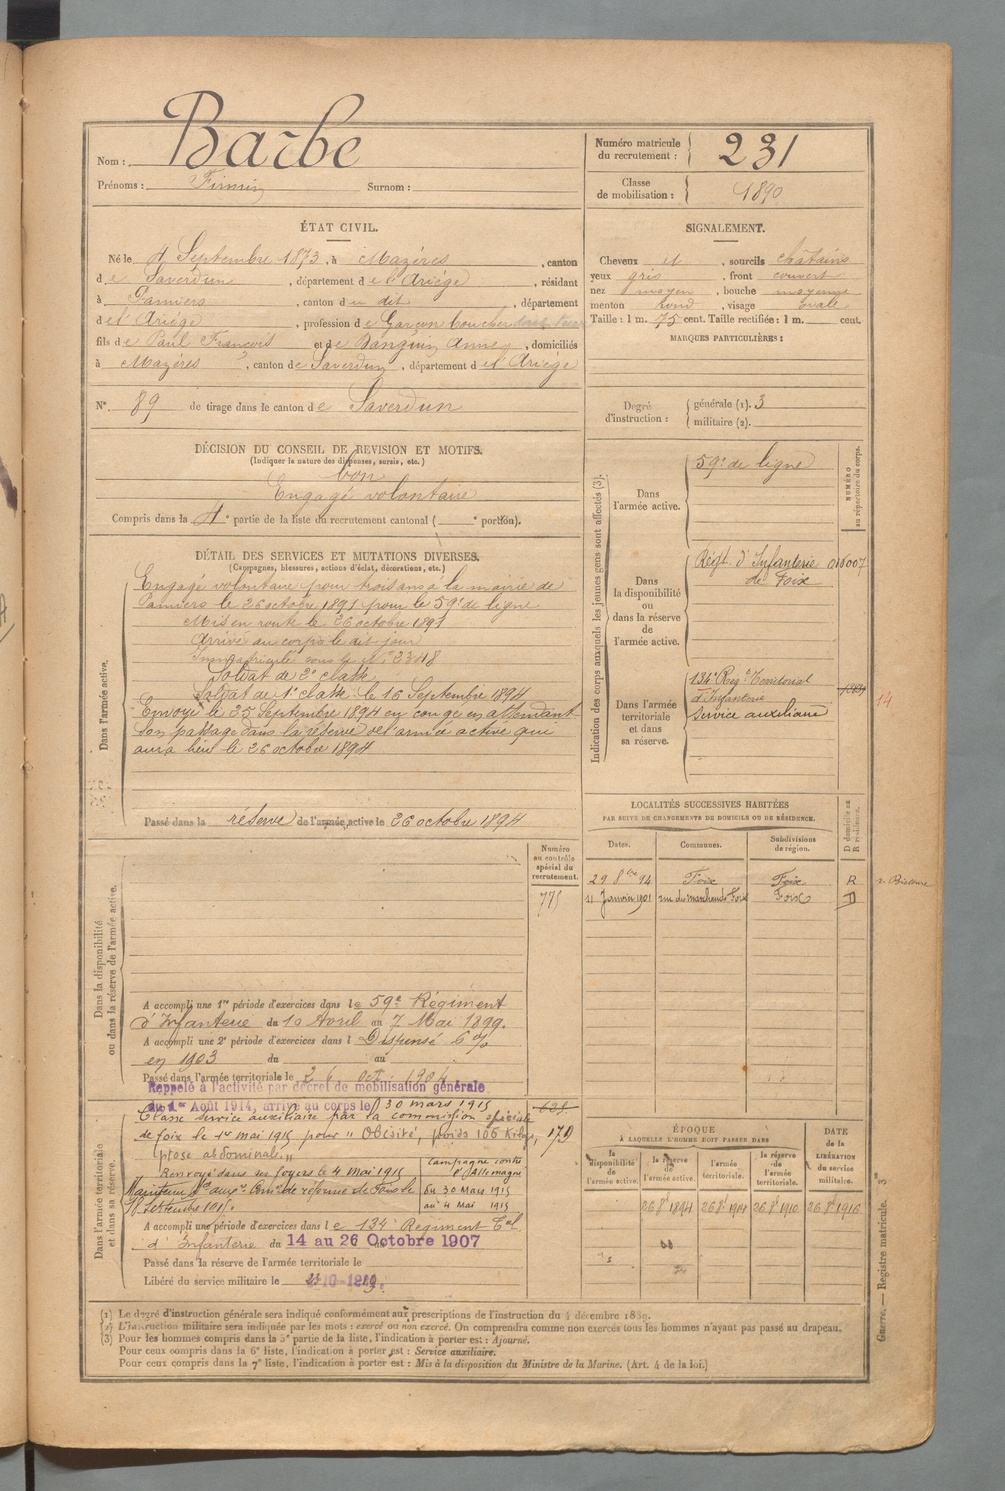 Nom : Barbe
Prénoms : Firmin Surnom :
Numéro matricule du recrutement : 231
Classe de mobilisation : 1890
ÉTAT CIVIL.
Né le 4 Septembre 1873, à Mazères, canton
de Saverdun, département de l'Ariége, résidant
à Pamiers, canton du dit, département
de l'Ariége, profession de Garçon boucher
fils de Paul François et de Danguin Anne, domiciliés
à Mazères, canton de Saverdun, département de l'Ariége
N° 89 de tirage dans le canton de Saverdun
SIGNALEMENT.
Cheveux et, sourcils châtains
yeux gris, front couvert
nez moyen, bouche moyenne
menton rond, visage ovale
Taille : 1 m. 75 cent. Taille rectifiée : 1 m. cent.
MARQUES PARTICULIÈRES :
Degré d'instruction : générale (1). 3
militaire (2).
DÉCISION DU CONSEIL DE REVISION ET MOTIFS.
(Indiquer la nature des dispenses, sursis, etc.)
bon
Engagé volontaire
Compris dans la 4e partie de la liste du recrutement cantonal ( e portion).
DÉTAIL DES SERVICES ET MUTATIONS DIVERSES.
(Campagnes, blessures, actions d'éclat, décorations, etc.)
Dans l'armée active.
Engagé volontaire pour trois ans à la mairie de
Pamiers le 26 octobre 1891 pour le 59e de ligne
Mis en route le 26 octobre 1891
Arrivé au corps le dit jour
Immatriculé sous le n° 2348
Soldat de 2e classe
Soldat de 1e classe le 16 Septembre 1894
Envoyé le 25 Septembre 1894 en congé en attendant
son passage dans la réserve de l'armée active qui
aura lieu le 26 octobre 1894
Passé dans la réserve de l'armée active le 26 octobre 1894
Indication des corps auxquels les jeunes gens sont affectés (3).
NUMÉRO au répertoire du corps.
Dans l'armée active.
59e de ligne
Dans la disponibilité ou dans la réserve de l'armée active.
Régt. d'Infanterie de Foix 016007
Dans l'armée territoriale et dans sa réserve.
134e Reg t Territorial
d'Infanterie
Service auxiliaire
14
LOCALITÉS SUCCESSIVES HABITÉES
PAR SUITE DE CHANGEMENTS DE DOMICILE OU DE RÉSIDENCE.
Dates. Communes. Subdivisions de région. D domicile ou R résidence.
29 8bre 94 Foix Foix R
11 Janvier 1901 rue des marchands Foix Foix
Numéro au contrôle spécial du recrutement.
775
Dans la disponibilité ou dans la réserve de l'armée active.
A accompli une 1re période d'exercices dans le 59e Régiment
d'Infanterie du 10 Avril au 7 Mai 1899.
A accompli une 2e période d'exercices dans l Dispensé 6 %
en 1903 du au
Passé dans l'armée territoriale le 26 oct. 1904
Rappelé à l'activité par décret de mobilisation générale
du 1er Août 1914, arrivé au corps le 30 mars 1915
Dans l'armée territoriale et dans sa réserve.
Classé service auxiliaire par la commission spéciale
de foix le 1er mai 1915 pour "Obésité, poids 106 Kilogs, 179
ptose abdominale"
Renvoyé dans ses foyers le 4 mai 1915
Campagne contre l'Allemagne
du 30 Mars 1915
au 4 Mai 1915
Maintenu Sce auxre Comon de réforme de Foix le
18 Septembre 1915.
A accompli une période d'exercices dans le 134e Régiment Tal
d'Infanterie du 14 au 26 Octobre 1907
Passé dans la réserve de l'armée territoriale le
Libéré du service militaire le
ÉPOQUE
À LAQUELLE L'HOMME DOIT PASSER DANS
la disponibilité de l'armée active. la réserve de l'armée active. l'armée territoriale. la réserve de l'armée territoriale.
DATE de la LIBÉRATION du service militaire.
26 8e 1894 26 8e 1904 26 8e 1910 26 8e 1916
(1) Le degré d'instruction générale sera indiqué conformément aux prescriptions de l'instruction du 4 décembre 1889.
(2) L'instruction militaire sera indiquée par les mots : exercé ou non exercé. On comprendra comme non exercés tous les hommes n'ayant pas passé au drapeau.
(3) Pour les hommes compris dans la 5e partie de la liste, l'indication à porter est : Ajourné.
Pour ceux compris dans la 6e liste, l'indication à porter est : Service auxiliaire.
Pour ceux compris dans la 7e liste, l'indication à porter est : Mis à la disposition du Ministre de la Marine. (Art. 4 de la loi.)
Guerre. — Registre matricule. 3